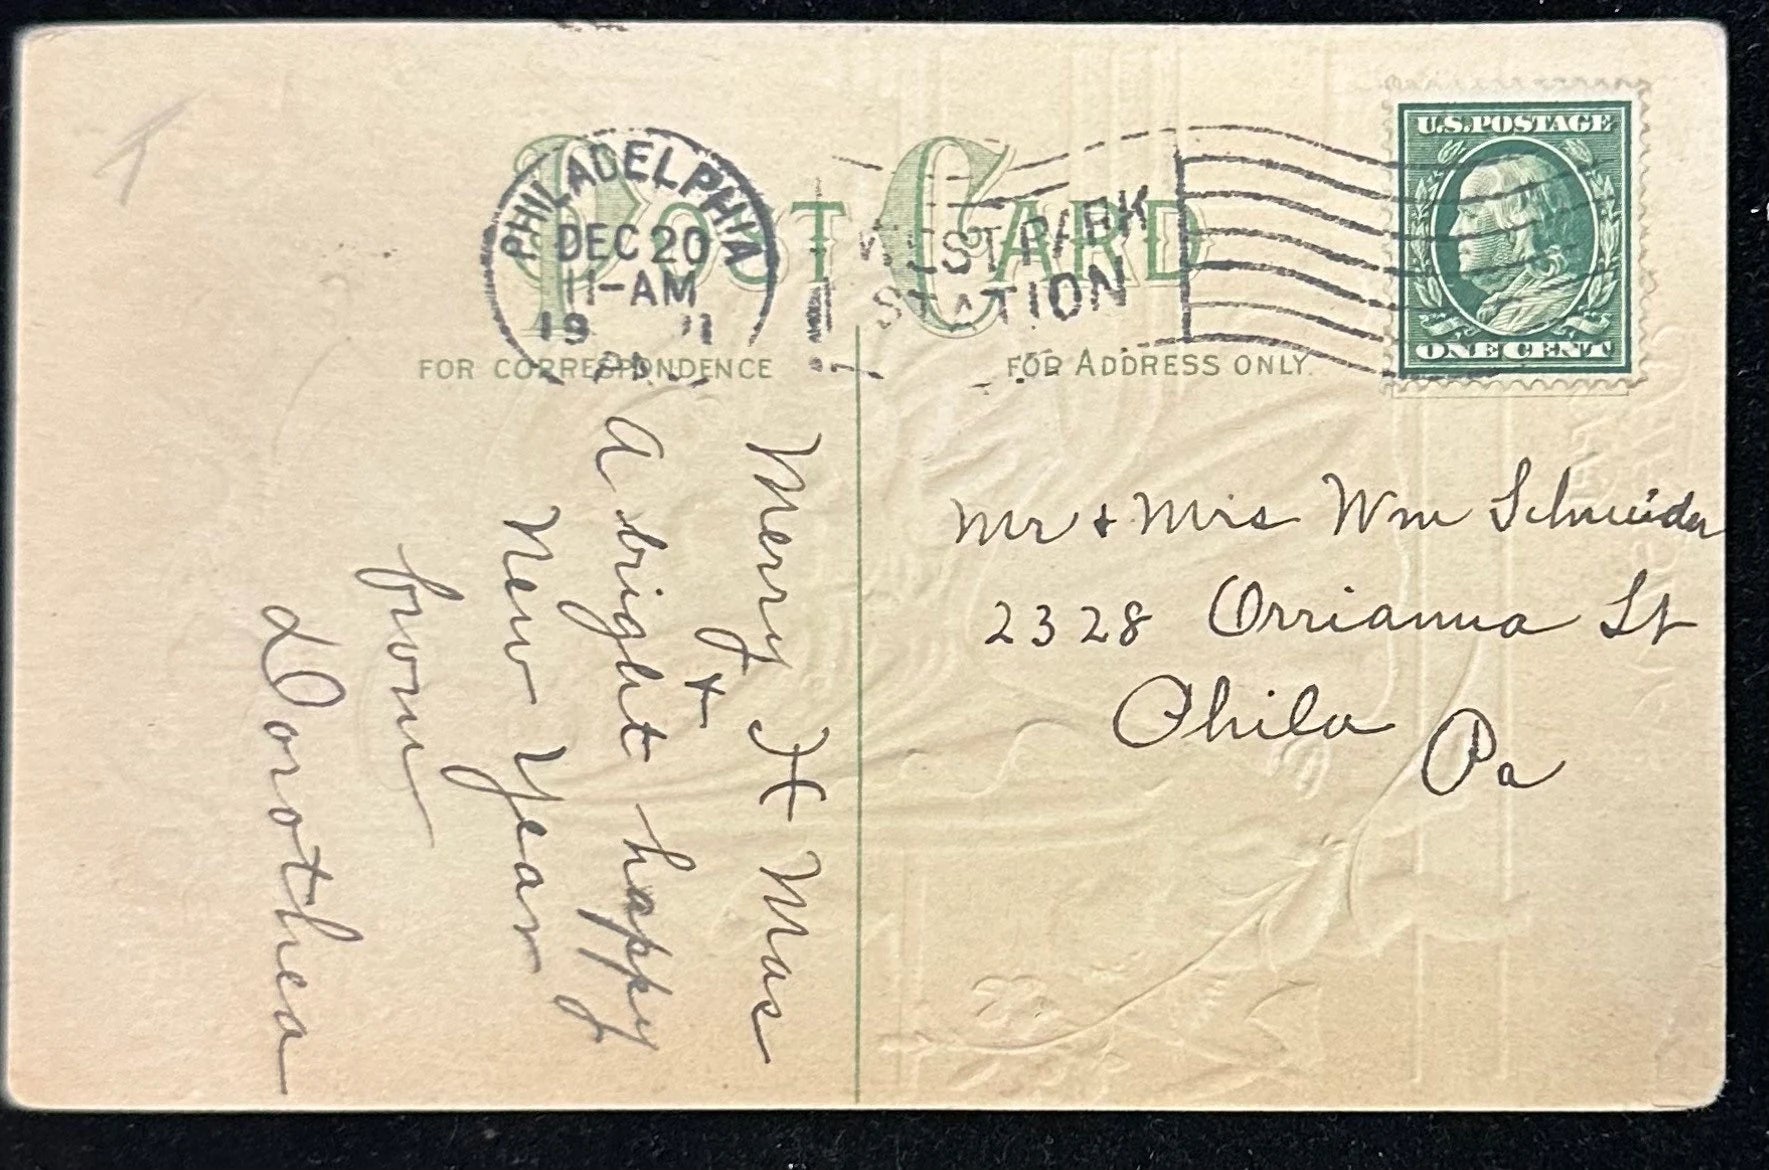 POST CARD
PHILADELPHIA
DEC 20
11-AM
19 11
PA
WEST PARK
STATION
U.S. POSTAGE
ONE CENT
FOR CORRESPONDENCE
FOR ADDRESS ONLY.
Merry X Mas
+
A bright happy
New Year
from
Dorothea
Mr + Mrs Wm Schneider
2328 Orrianna St
Phila
Pa